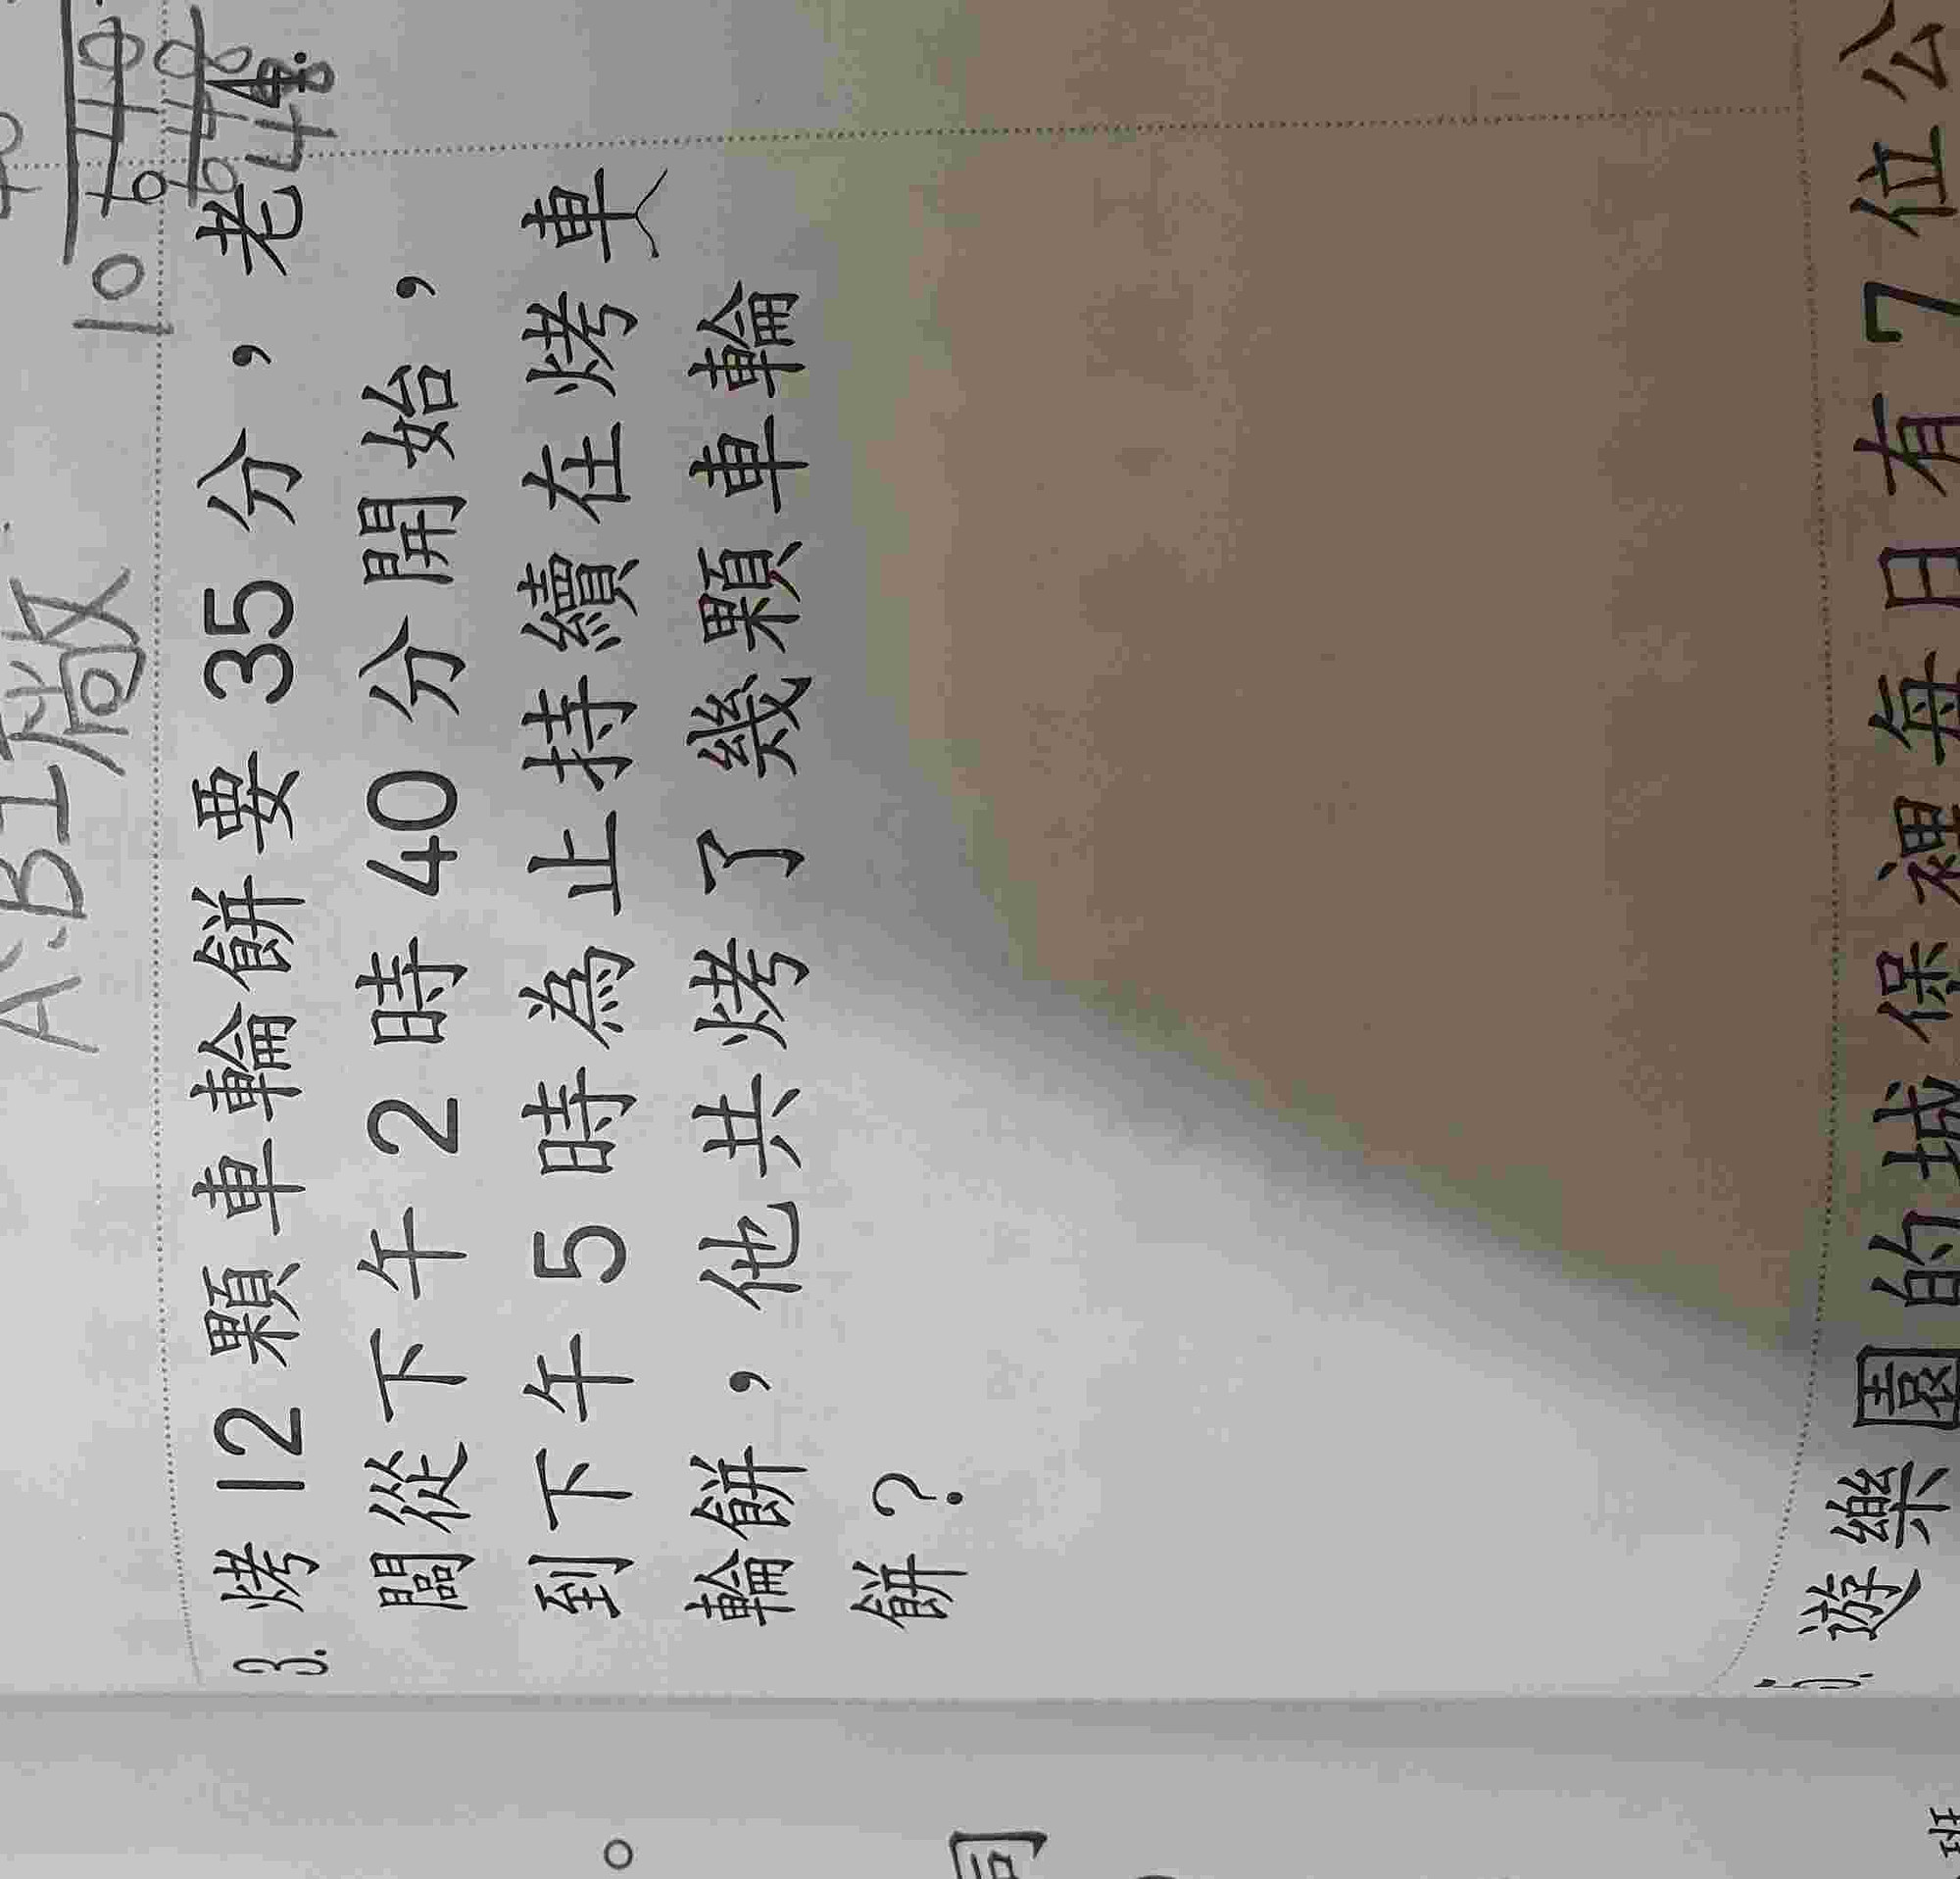 A:B工廠
3. 烤 12 顆車輪餅要 35 分,老
闆從下午 2 時 40 分開始,
到下午 5 時為止持續在烤車
輪餅,他共烤了幾顆車輪
餅?
4.
5. 遊樂園的城保裡每日有 7 位公